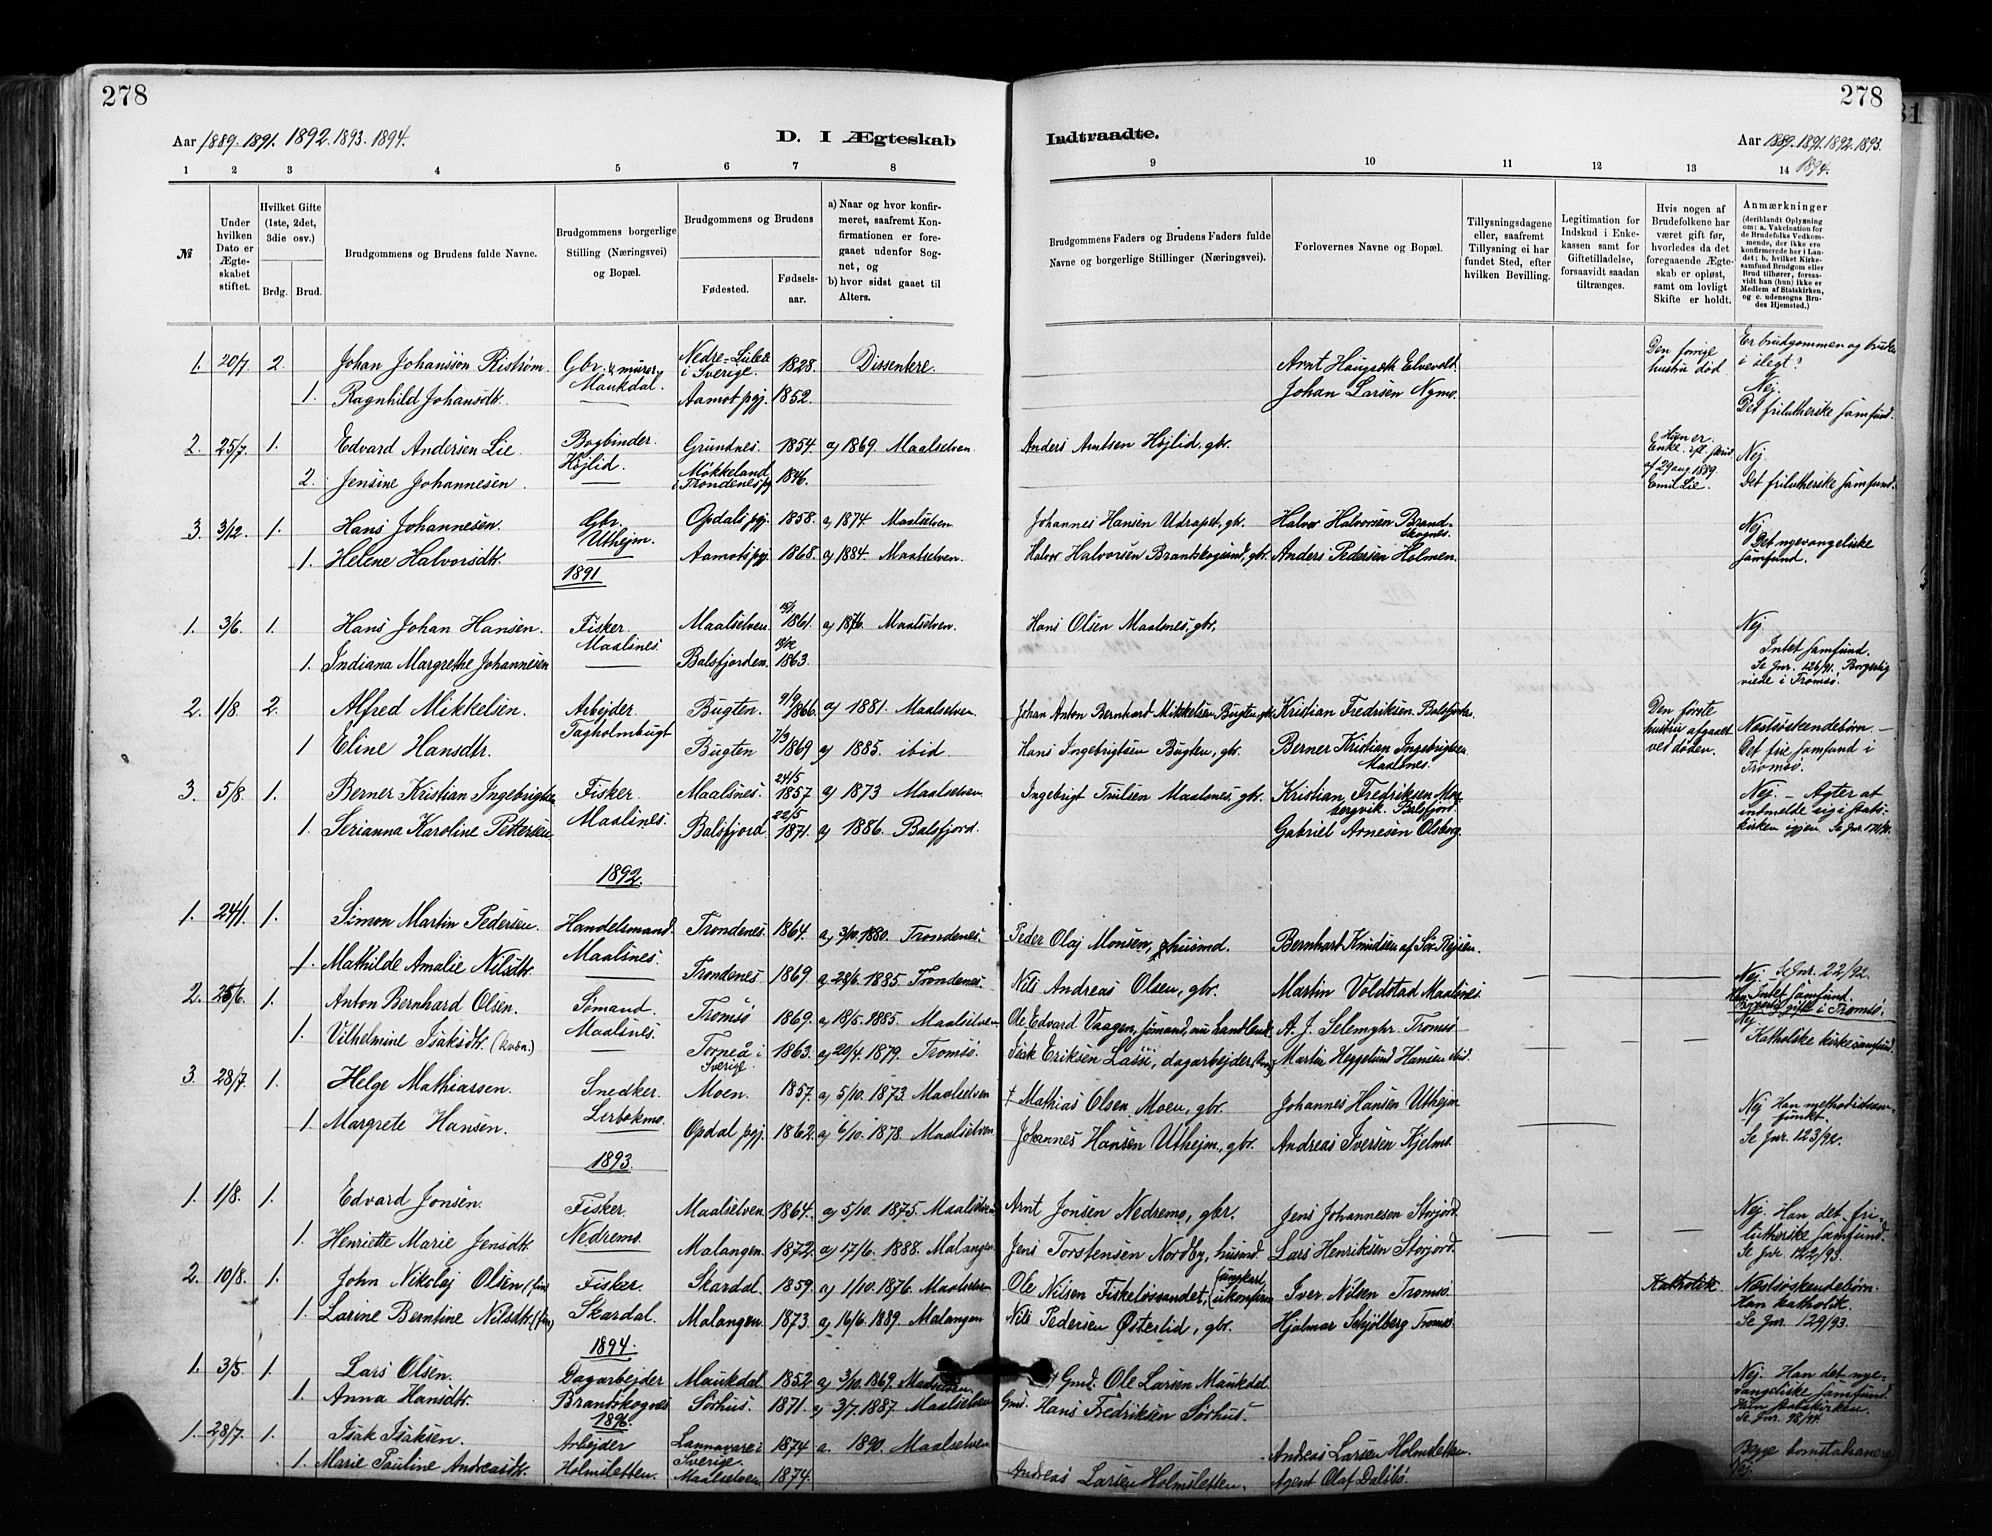 278
278
Aar 1889. 1891. 1892. 1893. 1894.
D. I Ægteskab
Indtraadte.
Aar 1889. 1891. 1892. 1893.
1894.
1 2 3 4 5 6 7 8
9 10 11 12 13 14
№
Under hvilken Dato er Ægteskabet stiftet.
Hvilket Gifte (1ste, 2det, 3die osv.)
Brdg. Brud.
Brudgommens og Brudens fulde Navne.
Brudgommens borgerlige Stilling (Næringsvei) og Bopæl.
Brudgommens og Brudens
Fødested.
Fødselsaar.
a) Naar og hvor konfirmeret, saafremt Konfirmationen er foregaaet udenfor Sognet, og
b) hvor sidst gaaet til Alters.
Brudgommens Faders og Brudens Faders fulde Navne og borgerlige Stillinger (Næringsvei).
Forlovernes Navne og Bopæl.
Tillysningsdagene eller, saafremt Tillysning ei har fundet Sted, efter hvilken Bevilling.
Legitimation for Indskud i Enkekassen samt for Giftetilladelse, forsaavidt saadan tiltrænges.
Hvis nogen af Brudefolkene har været gift før, hvorledes da det foregaaende Ægteskab er opløst, samt om lovligt Skifte er holdt.
Anmærkninger
(deriblandt Oplysning om: a. Vakcination for de Brudefolks Vedkommende, der ikke ere konfirmerede her i Landet; b. hvilket Kirkesamfund Brudgom eller Brud tilhører, forsaavidt han (hun) ikke er Medlem af Statskirken, og c. udensogns Brudes Hjemsted.)
1. 20/7. 2. Johan Johansson Riström. Gbr. & murer, Maukdal. Nedre-Luleå i Sverige. 1828. Dissentere. Arnt Haugseth Elvevold. Den forrige hustru død Er brudgommen og bruden i slegt?
1. Ragnhild Johansdtr. Aamot pgj. 1852. Johan Larsen Nymo. Nej. Det frilutherske samfund.
2. 25/7. 1. Edvard Andersen Lie. Bogbinder. Højlid. Grundnes. 1854. a) 1869. Maalselven. Anders Arntsen Højlid, gbr. Hun er Enke. af 29 aug. 1889. Emil Lie. Nej.
2. Jensine Johannesen. Møkkeland i Trondenes pgj. 1846. Det frilutherske samfund.
3. 3/12. 1. Hans Johannesen. Gbr. Uthejm. Opdals pgj. 1858. a) 1874. Maalselven Johannes Hansen Utrapet, gbr. Halvor Halvorsen Brandskognes. Nej
1. Helene Halvorsdtr. Aamots pgj. 1868. a) 1884. Maalselven. Halvor Halvorsen Brandskogsund, gbr. Anders Pedersen Holmen. Det nyevangeliske samfund.
1891
1. 3/6. 1. Hans Johan Hansen. Fisker. Maalsnes. Maalselven. 1861. a) 1876. Maalselven. Hans Olsen Maalsnes, gbr. Nej
1. Indiana Margrethe Johannesen Balsfjorden. 1863. Intet samfund. Se Jnr. 126/91. Borgerlig viede i Tromsø.
2. 1/8. 2. Alfred Mikkelsen. Arbejder. Tagholmbugt Bugten. 9/9 1866. a) 1881. Maalselven. Johan Anton Bernhard Mikkelsen Bugten, gbr. Kristian Fredriksen. Balsfjorden. Den første hustru afgaaet ved døden. Næstsøskendebørn.
1 Eline Hansdtr. Bugten 7/3 1869 a) 1885. ibid Hans Ingebrigtsen Bugten, gbr. Berner Kristian Ingebrigtsen. Maalsnes. Det frie samfund i Tromsø.
3. 5/8. 1. Berner Kristian Ingebrigtsen Fisker. Maalsnes. Maalsnes. 24/5 1857 a) 1873 Maalselven Ingebrigt Trulsen Maalsnes, gbr. Kristian Fredriksen Balsfjord. Nej. – Agter at indmelde sig i statskirken igjen.
1. Serianna Karoline Pettersen Balsfjord. 22/5 1871. a) 1886. Balsfjord. Gabriel Arnesen Olsborg.
1892.
1. 24/1. 1. Simon Martin Pedersen. Handelsmand. Maalsnes. Trondenes. 1864. a) 3/10. 1880. Trondenes. Peder Olaj Monsen, husmd. Bernhart Knudsen af Sør-Rejsen.
1. Mathilde Amalie Nilsdtr. Trondenes 1869 a. 28/6. 1885. Trondenes. Nils Andreas Olsen, gbr. Martin Voldstad Maalsnes. Nej – Se Jnr. 22/92. Intet samfund. Borgerlig gifte i Tromsø.
2. 25/6. 1. Anton Bernhard Olsen. Sømand. Maalsnes. Tromsø 1869. a) 18/5. 1885. Maalselven Ole Edvard Vaagen, sømand, nu handlende. A. J. Selemyhr. Tromsø Nej
1. Vilhelmine Isaksdtr. (kvæn.) Torneå i Sverige. 1863. a) 20/4. 1879. Tromsø. Isak Eriksen Lassi, dagarbejder Martin Heggelund Hansen ibid. Katholske kirkesamfund
3. 28/7. 1. Helge Mathiassen. Snedker. Lerbekmo. Moen. 1857. a) 5/10. 1873. Maalselven † Mathias Olsen Moen, gbr. Johannes Hansen Uthejm Nej Han
1. Margrete Hansen. Opdal pgj. 1862. a) 6/10. 1878. Maalselven Johannes Hansen Uthejm, gbr. Andreas Iversen Kjelmo. Se Jnr. 123/92.
1893.
1. 1/8. 1. Edvard Jonsen. Fisker. Nedremo. Maalselven. 1864. a) 5/10. 1875. Maalselven Arnt Jonsen Nedremo, gbr. Jens Johannesen Storjord Nej. Han det frilutherske samfund.
1. Henriette Marie Jensdtr. Malangen. 1872. a) 17/6. 1888. Malangen Jens Torstensen Nordby, husmd. Lars Henriksen Storjord. Se Jnr. 122/93.
2. 10/8. 1. John Nikolej Olsen, (fin) Fisker. Skardal. Skardal. 1859. a) 1/10. 1876. Maalselven Ole Nilsen Fiskeløsvandet, (ungkarl, ukonfirm. Iver Nilsen Tromsø. Katholik Næstsøskendebørn. Han katholik.
1. Larine Berntine Nilsdtr. (fin) Malangen. 1873. a) 16/6. 1889. Malangen Nils Pedersen Østerlid, gbr. Hjalmar Schjølberg Tromsø. Se Jnr. 129/93.
1894.
1. 3/5. 1. Lars Olsen. Dagarbejder Brandskognes Maukdal. 1852 a) 3/10. 1869. Maalselven. † Gmd. Ole Larsen Maukdal. Nej. Han det nyevangeliske samfund.
1. Anna Hansdtr. Sørhus. 1871. a) 3/7. 1887. Maalselven Gmd. Hans Fredriksen Sørhus. Hun statskirken. Se Jnr. 98/94.
1896.
1. 28/7. 1. Isak Isaksen. Arbejder Holmsletten. Lannavare i Sverige 1874 a. 1890. Maalselven Andreas Larsen Holmsletten. Begge
1. Marie Pauline Andreasdtr. Maalselven 1874. Andreas Larsen Holmsletten. Agent Olaf Dalsbø. Nej.